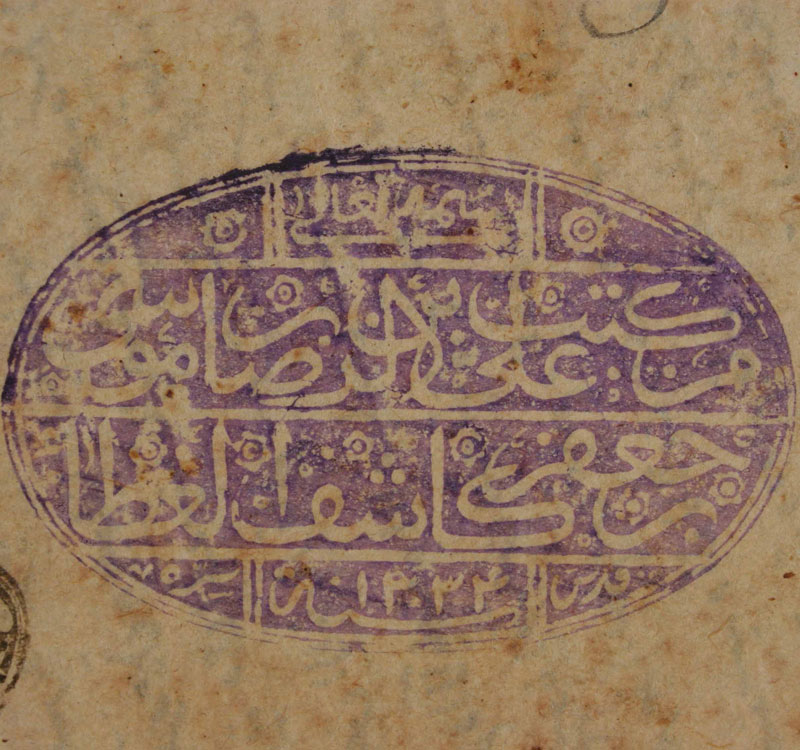 بسمه تعالى
من كتب علي بن الرضا بن موسى
بن جعفر كاشف الغطا
قدس سنة ١٣٣٤ سره